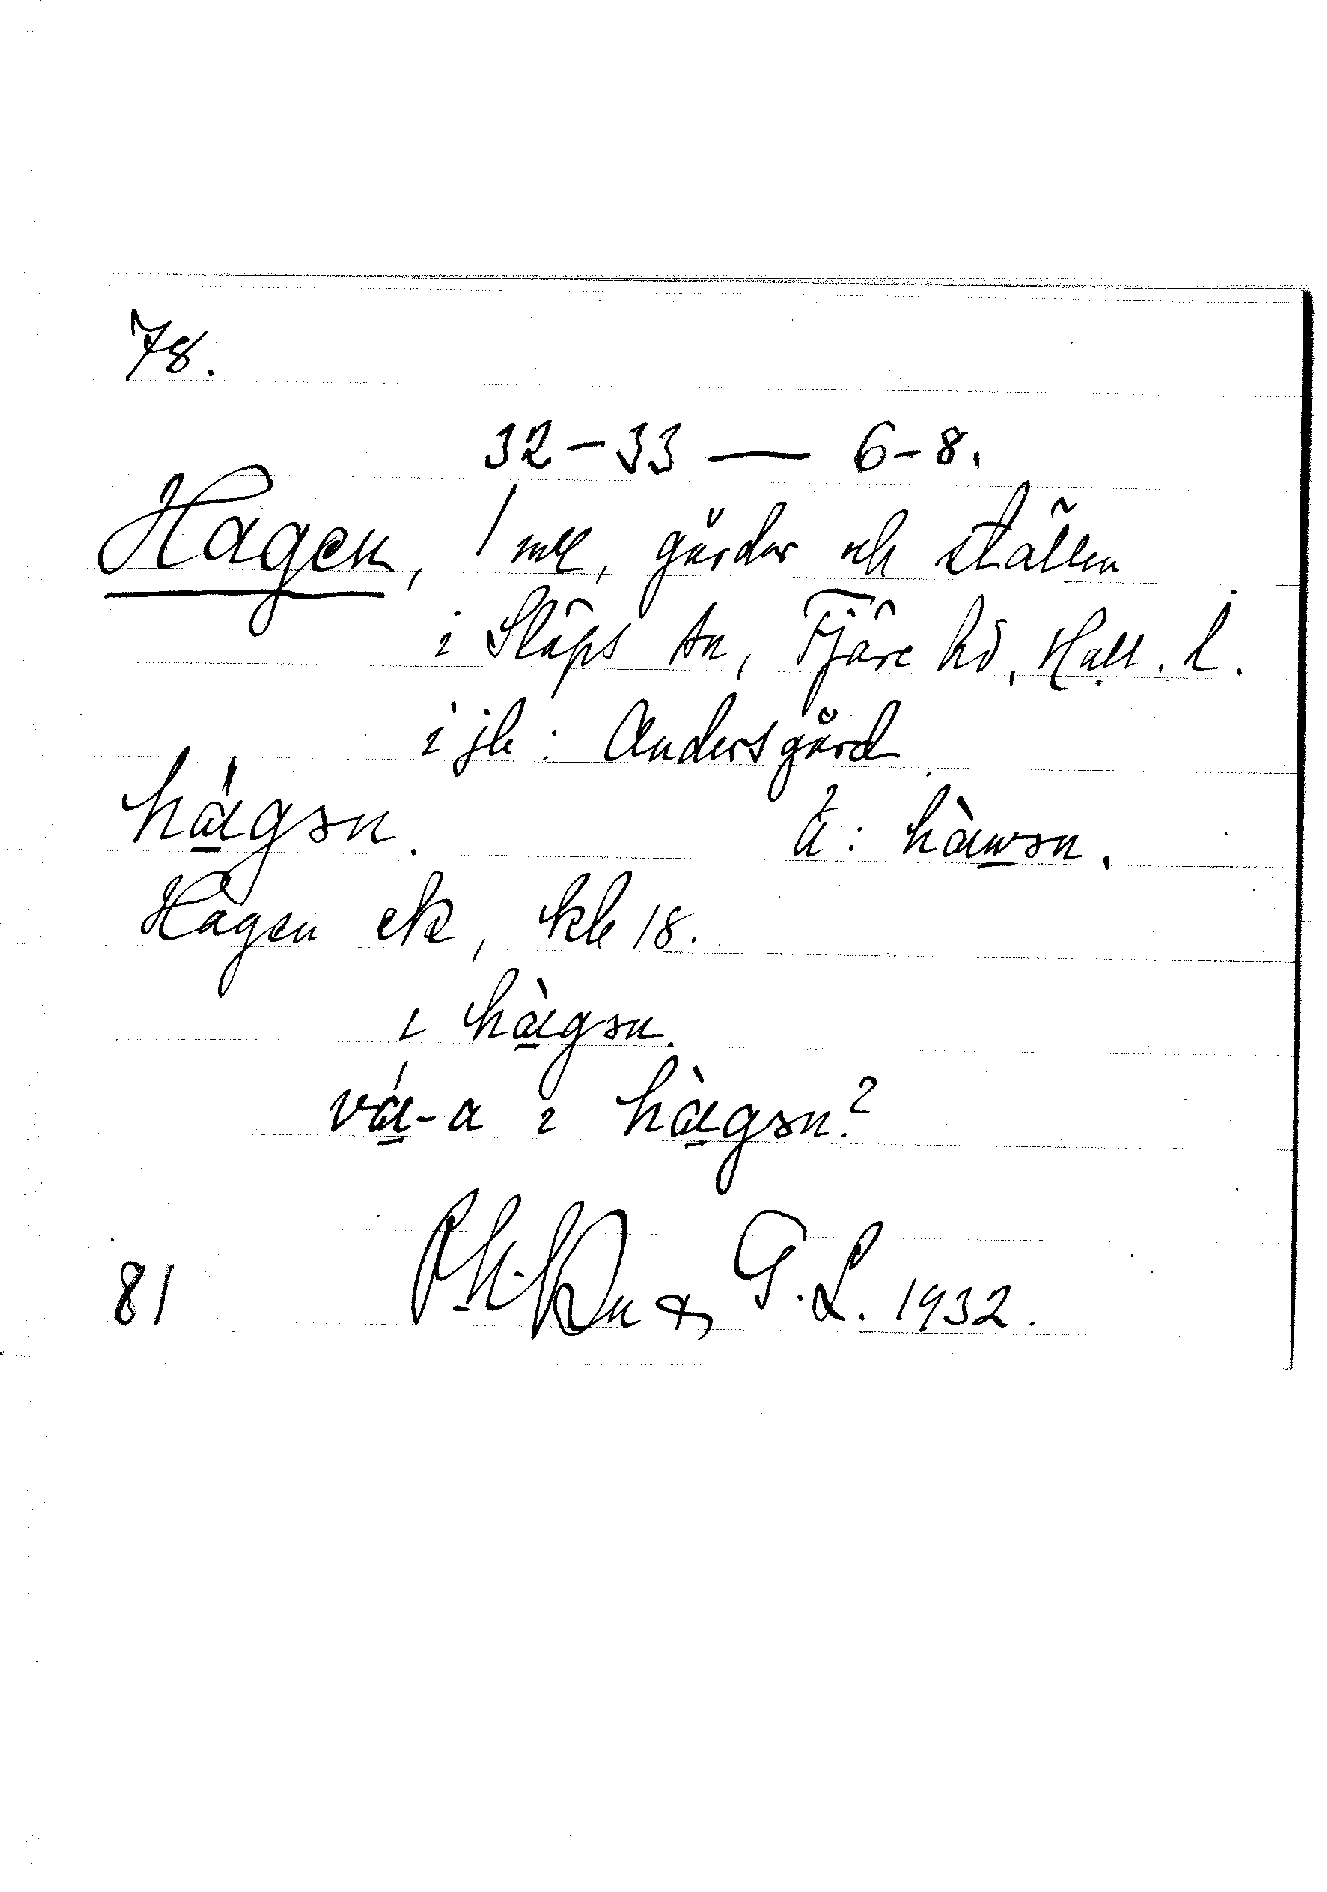 78.
32-33 — 6-8.
Hagen, 1 mtl, gårdar och ställen
i Släps sn, Fjäre hd, Hall. l.
i jb: Andersgård
hàgən. Ä: hàwən.
Hagen ek, kbl 18.
i hàgən.
vá-a i hàgən?
& G. L. 1932.
81